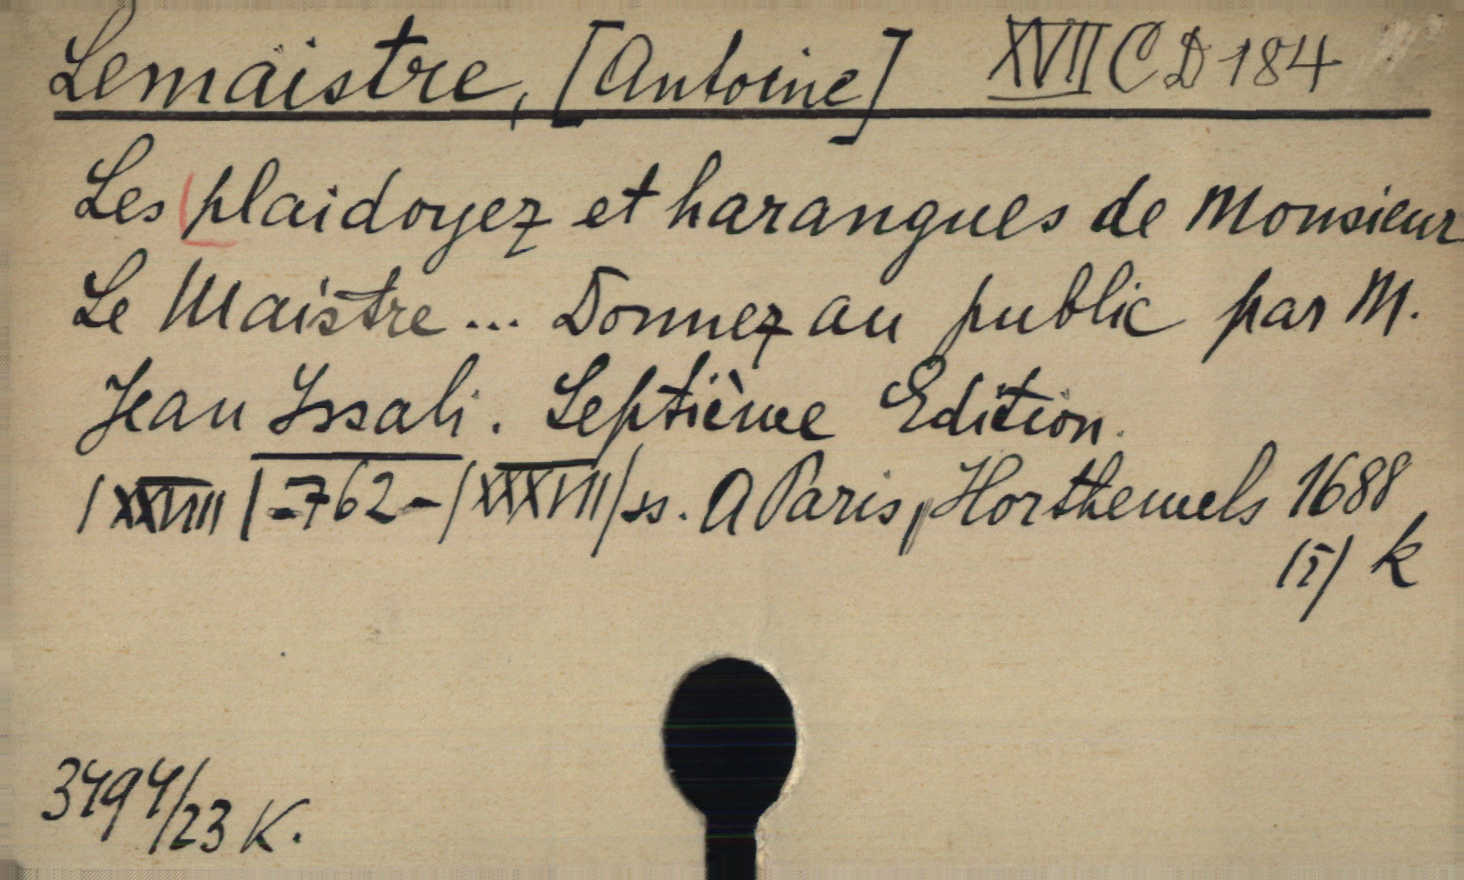 Lemaistre, [Antoine] XVII C D 184
Les plaidoyez et harangues de Monsieur
Le Maistre... Donnez au public par M.
Jean Issali. Septième Edition.
/XXVIII/-762-/XXXVIII/ss. A Paris, Horthemels 1688
/5/ k
3494/23 K.